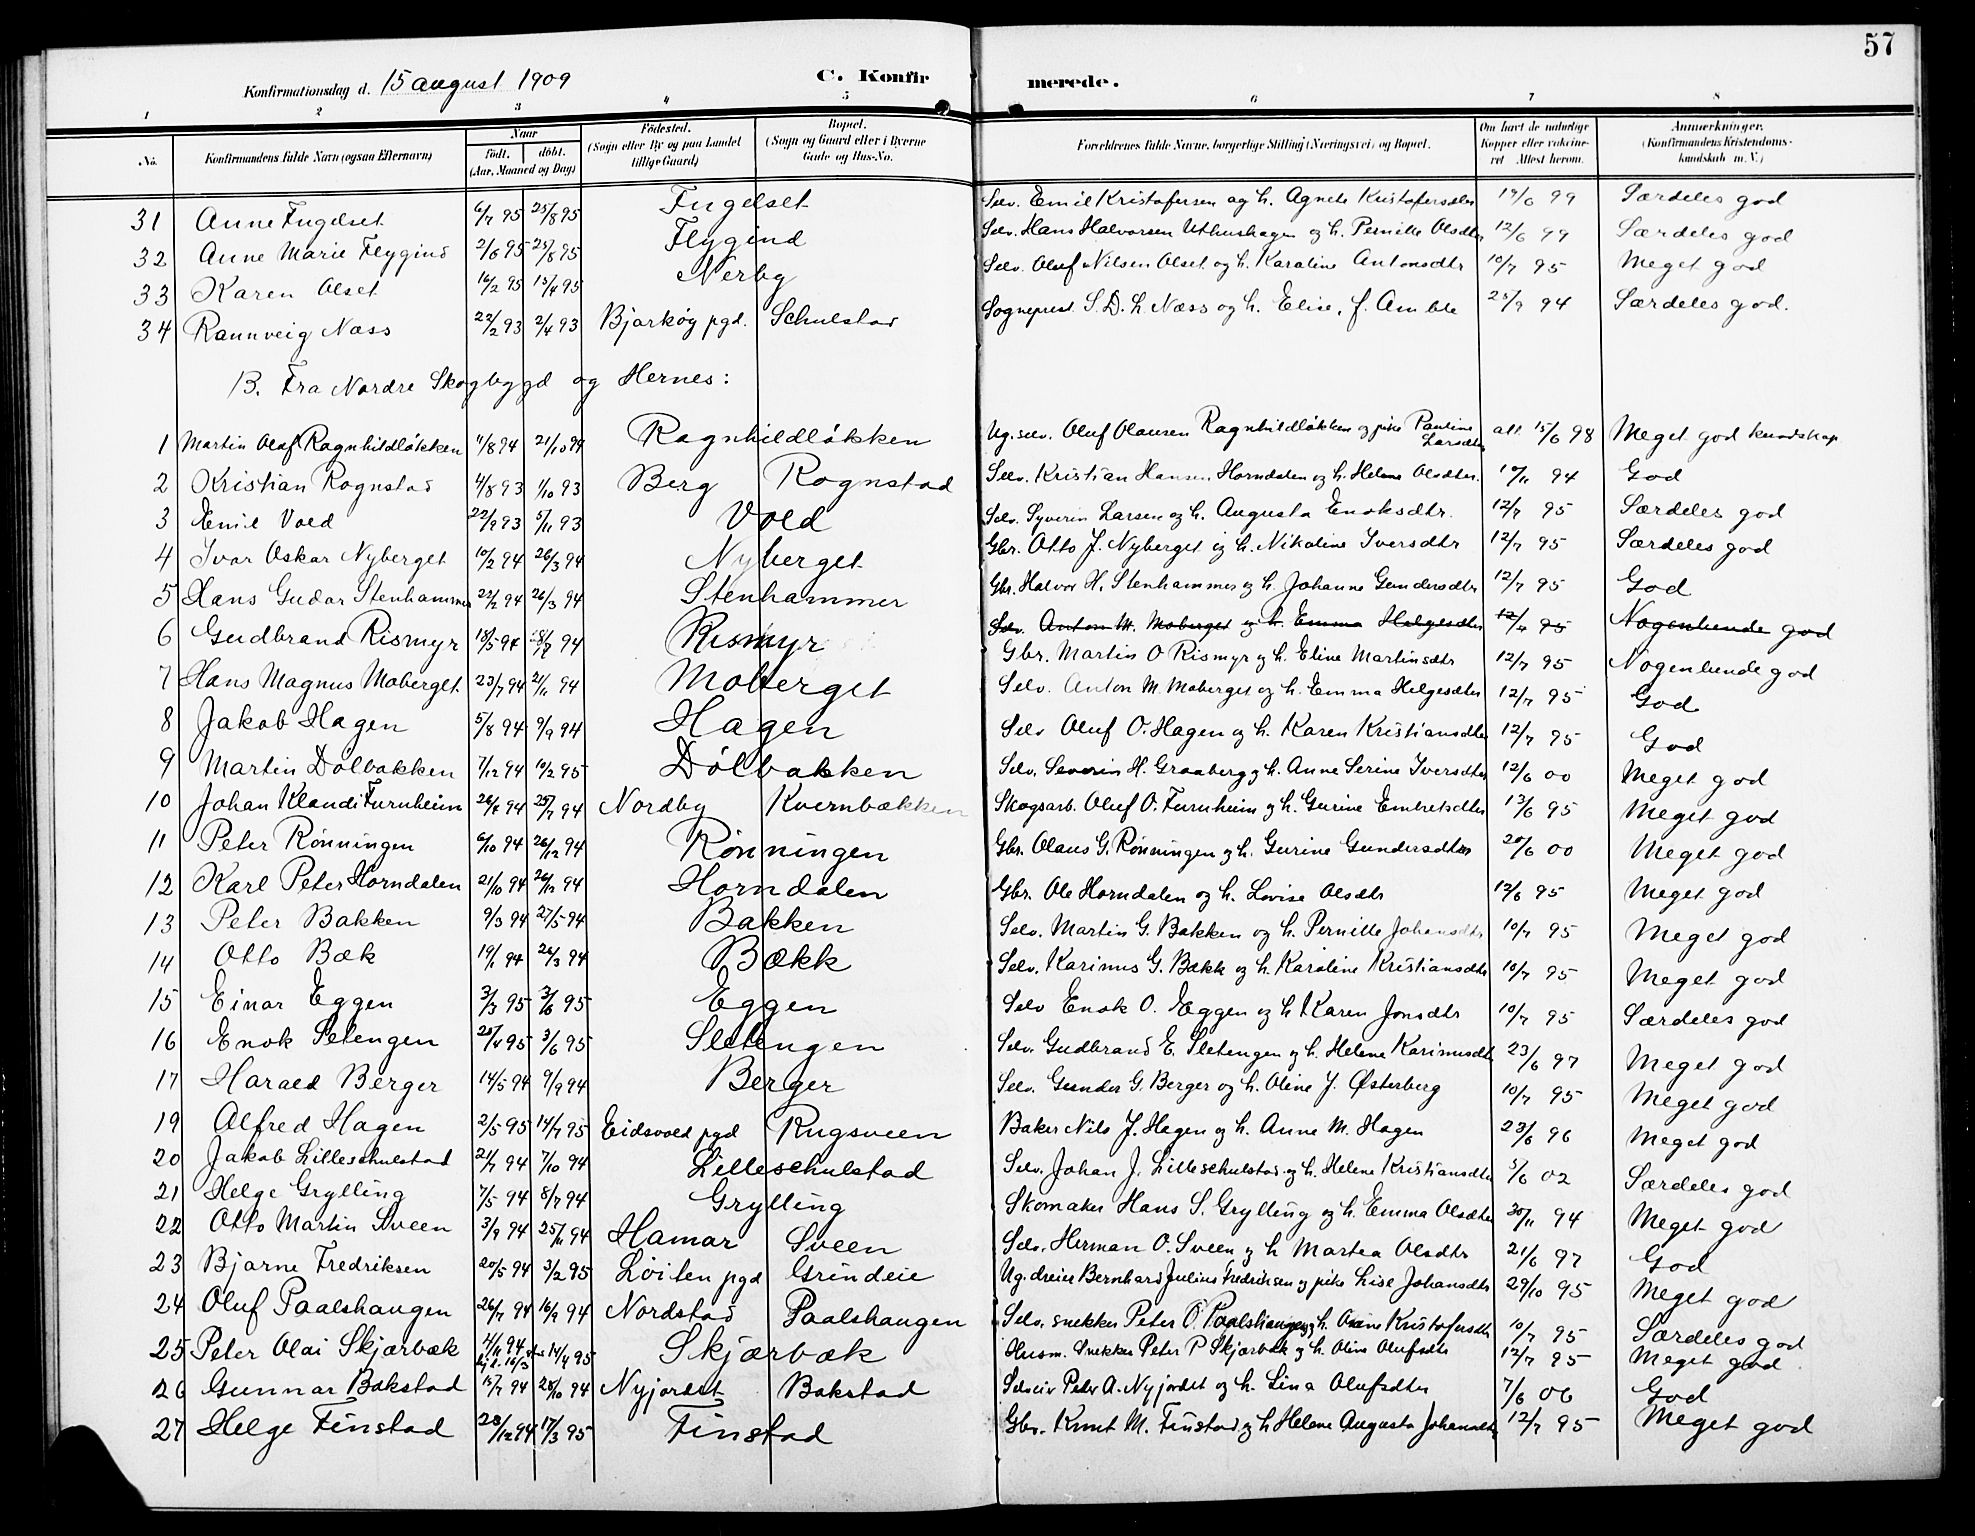 57
Konfirmationsdag d. 15 august 1909 C. Konfirmerede.
1 2 3 4 5 6 7 8
No. Konfirmandens fulde Navn (ogsaa Efternavn) Naar født. døbt. (Aar, Maaned og Dag) Fødested. (Sogn eller By og paa Landet tillige Gaard) Bopæl. (Sogn og Gaard eller i Byerne Gade og Hus-No. Forældrenes fulde Navne, borgerlige Stilling (Næringsvei) og Bopæl. Om havt de naturlige Kopper eller vakcineret Attest herom. Anmerkninger. (Konfirmandens Kristendomskundskab m. V.)
31 Anne Fugelset 6/7 95 25/8 95 Fugelset Selv. Emil Kristofersen og h. Agnete Kristofersdtr 19/6 99 Særdeles god
32 Anne Marie Flygind 2/6 95 25/8 95 Flygind Selv. Hans Halvorsen Uthushagen og h. Pernille Olsdtr 12/6 99 Særdeles god
33 Karen Olset 16/2 95 15/4 95 Nerby Selv. Oluf Nilsen Olset og h. Karoline Antonsdtr 10/7 95 Meget god
34 Rannveig Næss 22/2 93 2/4 93 Bjarkøy pgd. Schulstad Sogneprest S. D. L. Næss og h. Elise, f. Amble 25/9 94 Særdeles god.
B. Fra Nordre Skogbygd og Hernes:
1 Martin Olaf Ragnhildløkken 11/8 94 21/10 94 Ragnhildløkken Ug. selv. Oluf Olausen Ragnhildløkken og pike Pauline Larsdtr att. 15/6 98 Meget god kundskap
2 Kristian Rognstad 4/8 93 1/10 93 Berg Rognstad Selv. Kristian Hansen Horndalen og h. Helene Olsdtr. 10/11 94 God
3 Emil Vold 22/9 93 5/11 93 Vold Selv. Syverin Larsen og h. Augusta Enoksdtr. 12/7 95 Særdeles god
4 Ivar Oskar Nyberget 10/2 94 26/3 94 Nyberget Gbr. Otto J. Nyberget og h. Nikoline Iversdtr 12/7 95 Særdeles god
5 Hans Gudar Stenhammer 22/2 94 26/3 94 Stenhammer Gbr. Halvor H. Stenhammer og h. Johanne Gundersdtr 12/7 95 God
6 Gudbrand Rismyr 18/5 94 8/7 94 Rismyr Selv. Anton M. Moberget og h. Emma Helgesdtr 12/7 95 Nogenlunde god
Gbr. Martin O Rismyr og h. Eline Martinsdtr 12/7 95 Nogenlunde god
7 Hans Magnus Moberget 23/7 94 2/11 94 Moberget Selv. Anton M. Moberget og h. Emma Helgesdtr 12/7 95 God
8 Jakob Hagen 5/8 94 9/9 94 Hagen Selv Oluf O. Hagen og h. Karen Kristiansdtr 12/7 95 God
9 Martin Dølbakken 7/12 94 10/2 95 Dølbakken Selv. Severin H. Graaberg og h. Anne Serine Iversdtr 12/6 00 Meget god
10 Johan Klaudi Furuheim 94 25/7 94 Nordby Kvernbækken Skogsarb. Oluf O. Furuheim og h. Gurine Embretsdtr 13/6 95 Meget god
11 Peter Rønningen 6/10 94 26/12 94 Rønningen Gbr. Olaus G. Rønningen og h. Gurine Gundersdtr 20/6 00 Meget god
12 Karl Peter Horndalen 21/10 94 26/12 94 Horndalen Gbr. Ole Horndalen og h. Lovise Olsdtr 12/6 95 Meget god
13 Peter Bakken 9/3 94 27/5 94 Bakken Selv. Martin G. Bakken og h. Pernille Johansdtr 10/7 95 Meget god
14 Otto Bæk 19/1 94 26/3 94 Bækk Selv. Karinus G. Bækk og h. Karoline Kristiansdtr 10/7 95 Meget god
15 Einar Eggen 3/3 95 3/6 95 Eggen Selv Enok O. Eggen og h Karen Jonsdtr 10/7 95 Særdeles god
16 Enok Sletengen 25/4 95 3/6 95 Sletengen Selv. Gudbrand E. Sletengen og h. Helene Karinusdtr 23/6 97 Meget god
17 Harald Berger 14/5 94 9/9 94 Berger Selv. Gunder G. Berger og h. Oline J. Østerberg 10/7 95 Meget god
19 Alfred Hagen 2/5 95 14/7 95 Eidsvold pgd Rugsveen Baker Nils J. Hagen og h. Anne M. Hagen 23/6 96 Meget god
20 Jakob Lilleschulstad 21/7 94 7/10 94 Lilleschulstad Selv. Johan J. Lilleschulstad og h. Helene Kristiansdtr 5/6 02 Særdeles god
21 Helge Grylling 7/5 94 8/7 94 Grylling Skomaker Hans S. Grylling og h. Emma Olsdtr 30/11 94 Meget god
22 Otto Martin Sveen 3/9 94 25/11 94 Hamar Sveen Selv. Herman O. Sveen og h Martea Olsdtr 21/6 97 God
23 Bjarne Fredriksen 20/5 94 3/2 95 Løiten pgd Grindeie Ug. dreier Bernhard Julius Fredriksen og pike Lise Johansdtr 29/10 95 Meget god
24 Oluf Paalshaugen 26/7 94 16/9 94 Nordstad Paalshaugen Selv. snekker Peter O. Paalshaugen og h. Kristofersdtr 10/7 95 Særdeles god
25 Peter Olai Skjærbæk 4/11 94 14/4 95 Skjærbæk Husm. Snekker Peter P Skjærbæk og h. Oline Olufsdtr 12/7 95 Meget god
26 Gunnar Bakstad 15/7 94 28/10 94 Nyjordet Bakstad Selveier Peder A. Nyjordet og h. Lina Olufsdtr 7/6 06 God
27 Helge Finstad 28/12 94 17/3 95 Finstad Gbr. Knut M. Finstad og h Helene Augusta Johansdtr 12/7 95 Meget god